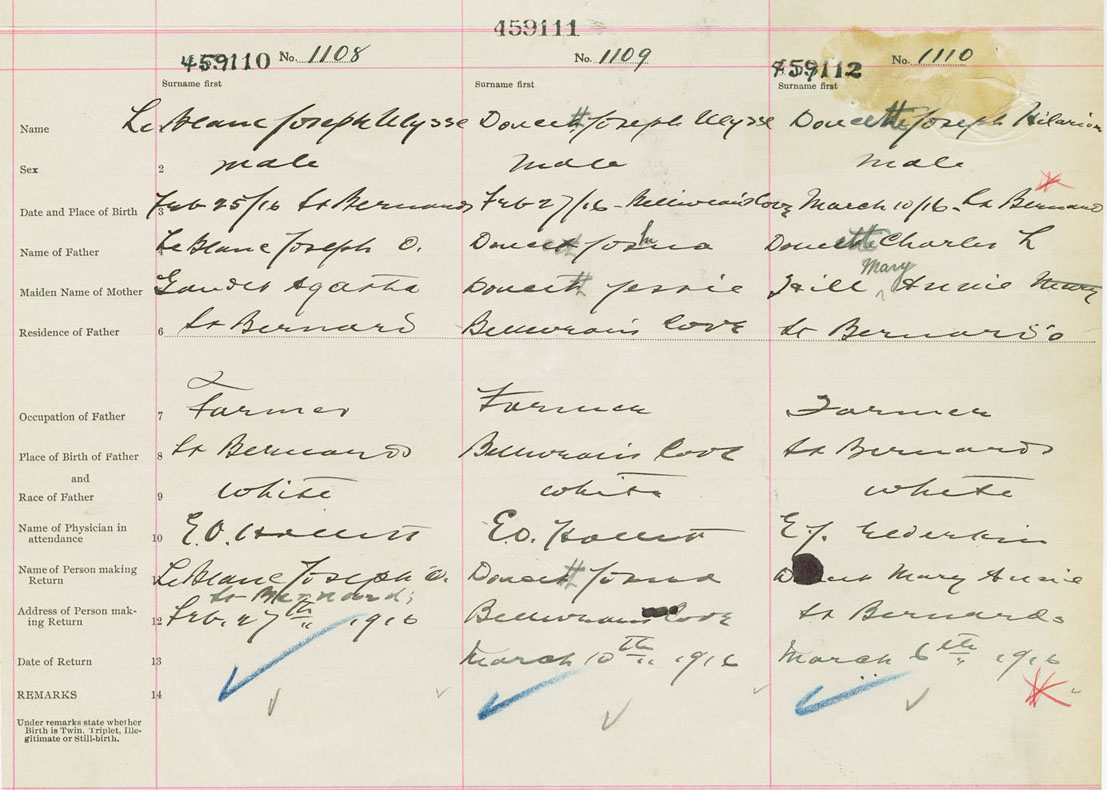 459111
459110 No. 1108 No. 1109 459112 No. 1110
Surname first Surname first Surname first
Name Le Blanc Joseph Ulysse Doucett Joseph Ulysse Doucette Joseph Hilarion
Sex 2 male Male male
Date and Place of Birth 3 Feb 25/16 St Bernards Feb 27/16 - Cove March 10/16 - St Bernard
Name of Father 4 Le Blanc Joseph O. Doucett Doucette Charles L
Mary
Maiden Name of Mother Gaudet Agatha Doucett Jessie Annie Mary
Residence of Father 6 St Bernard Cove St Bernards
Occupation of Father 7 Farmer Farmer Farmer
Place of Birth of Father 8 St Bernards Cove St Bernards
and
Race of Father 9 White White White
Name of Physician in
attendance 10 E.O. Hallett E.O. Hallett E.J. Elderkin
Name of Person making
Return Le Blanc Joseph O. Doucett Mary Annie
St Bernards
Address of Person mak-
ing Return 12 Feb. 27th 1916 Cove St Bernards
Date of Return 13 March 10th 1916 March 6th 1916
REMARKS 14
Under remarks state whether
Birth is Twin, Triplet, Ille-
gitimate or Still-birth.